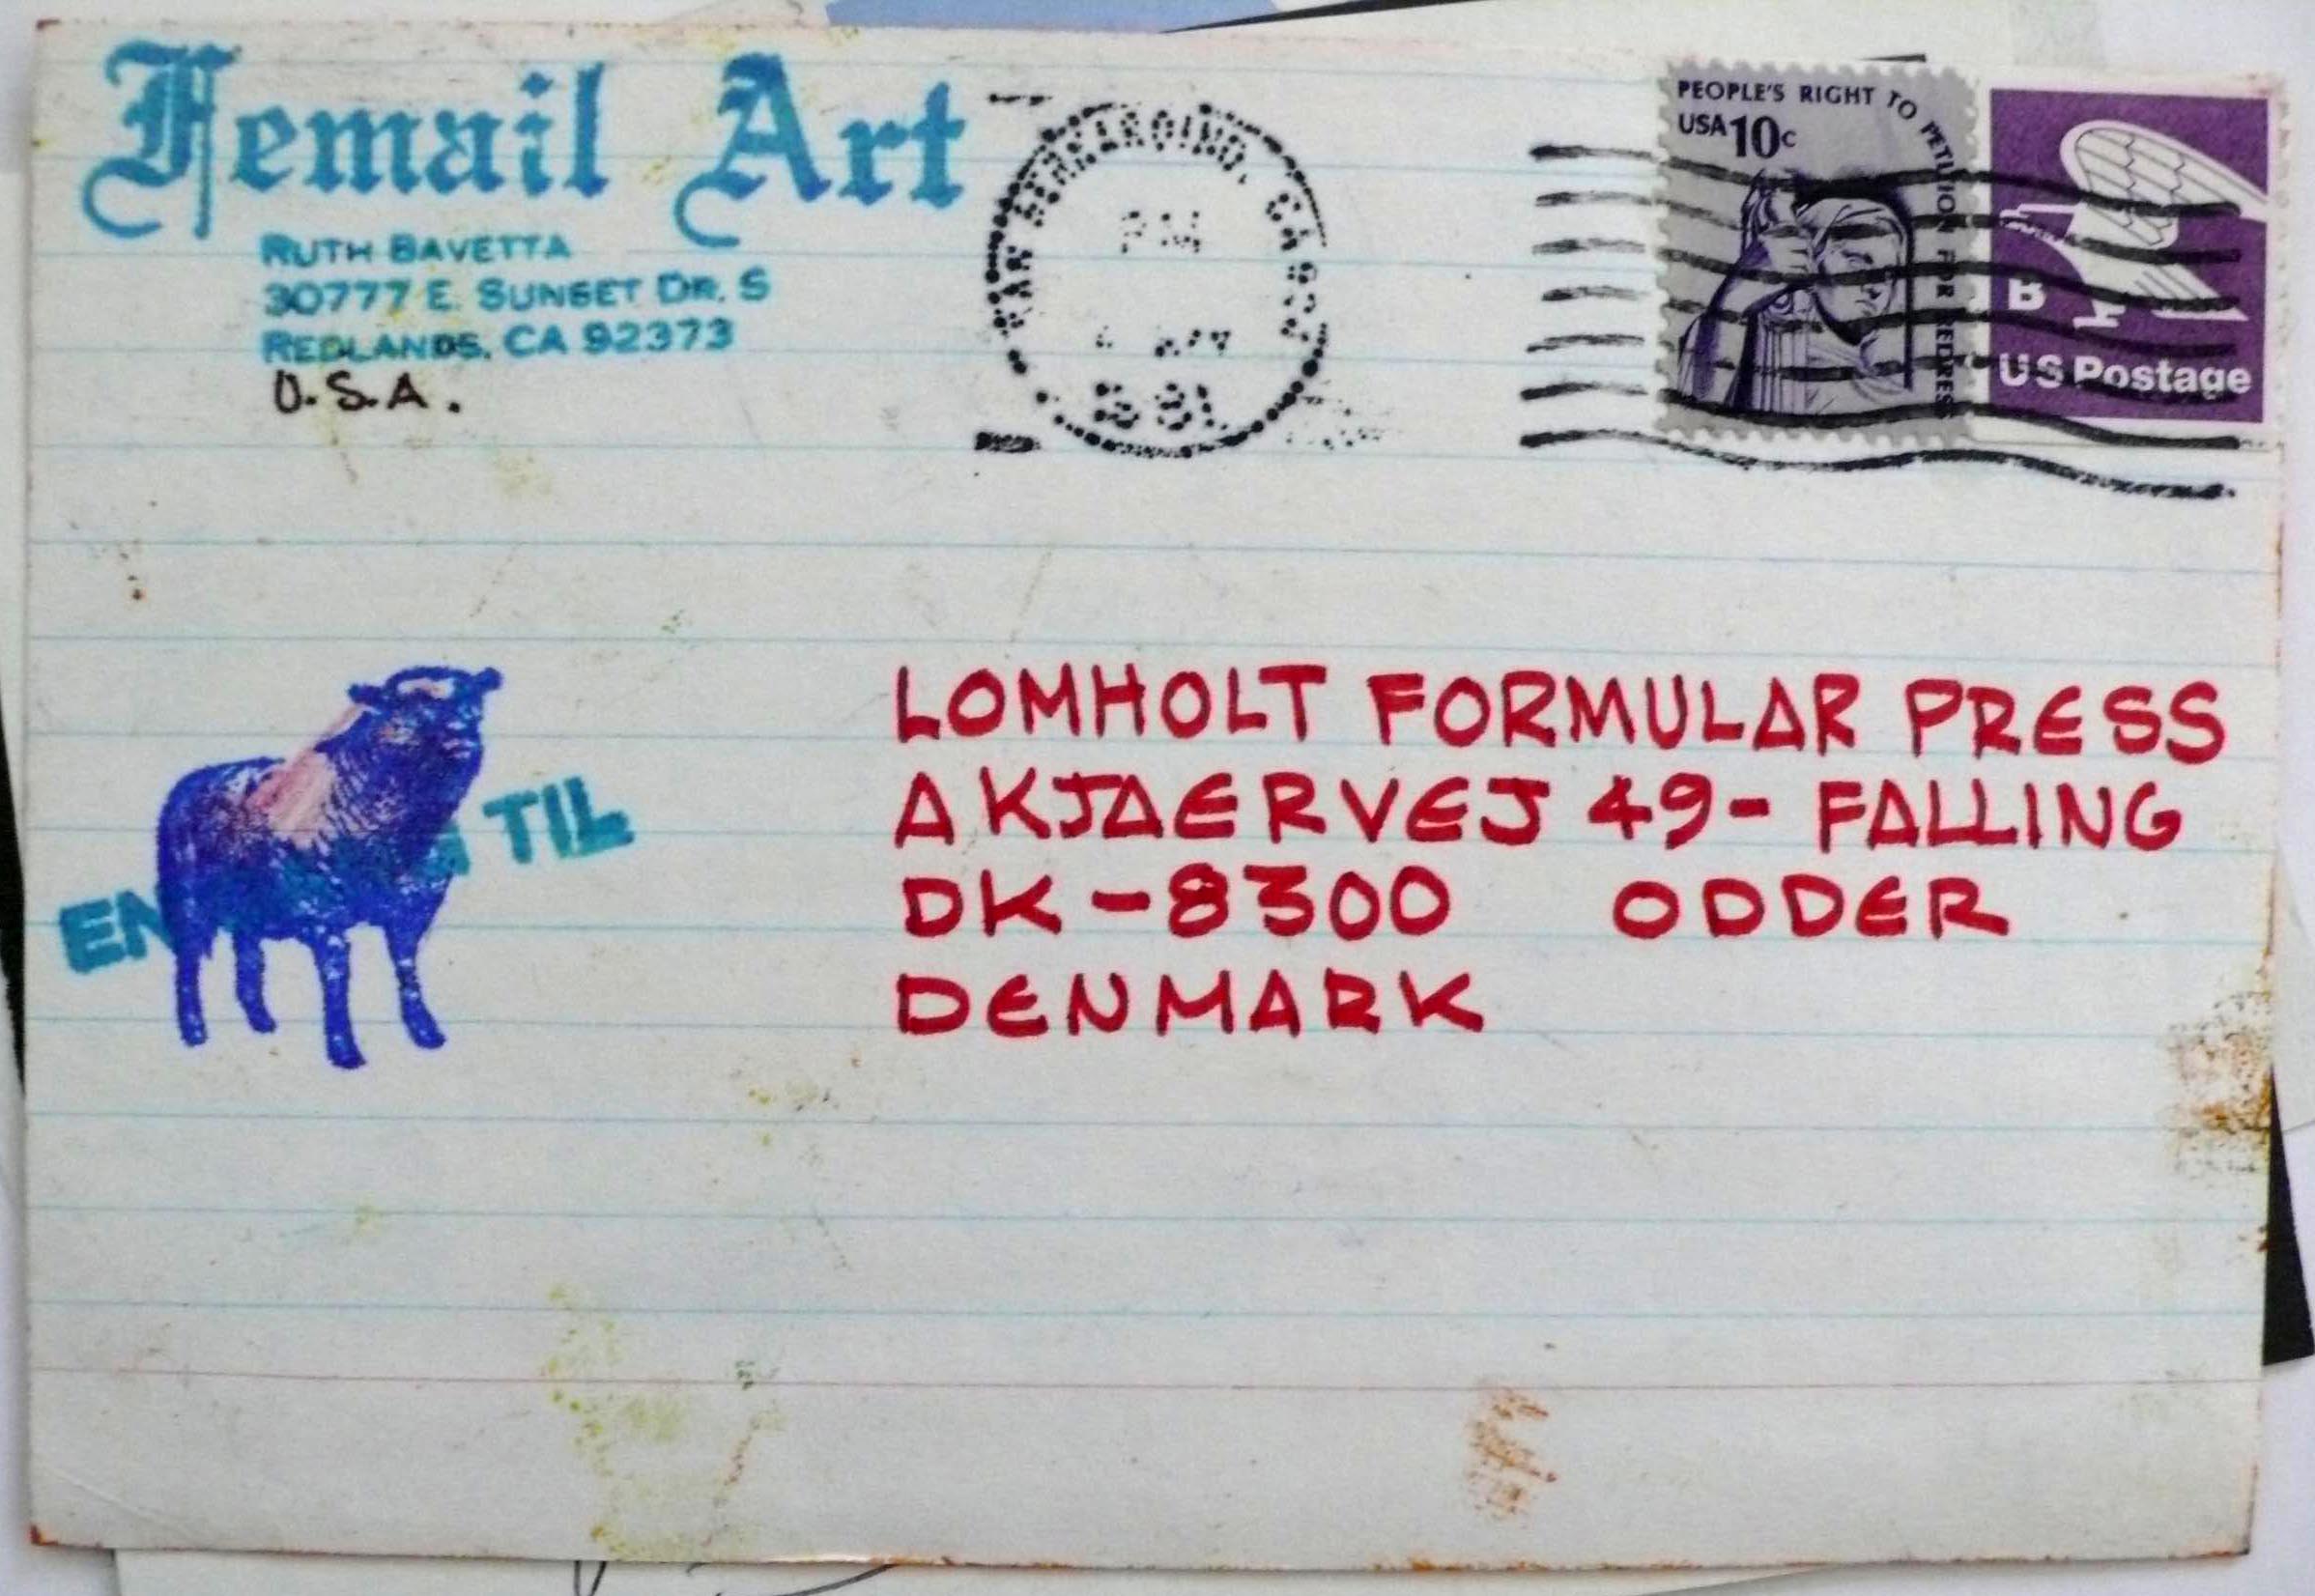 Femail Art
RUTH BAVETTA
30777 E. SUNSET DR. S
REDLANDS, CA 92373
U.S.A.
SAN BERNARDINO, CA
PM
1981
PEOPLE'S RIGHT TO PETITION FOR REDRESS
USA 10c
B
US Postage
TIL
LOMHOLT FORMULAR PRESS
AKJAERVEJ 49- FALLING
DK-8300 ODDER
DENMARK